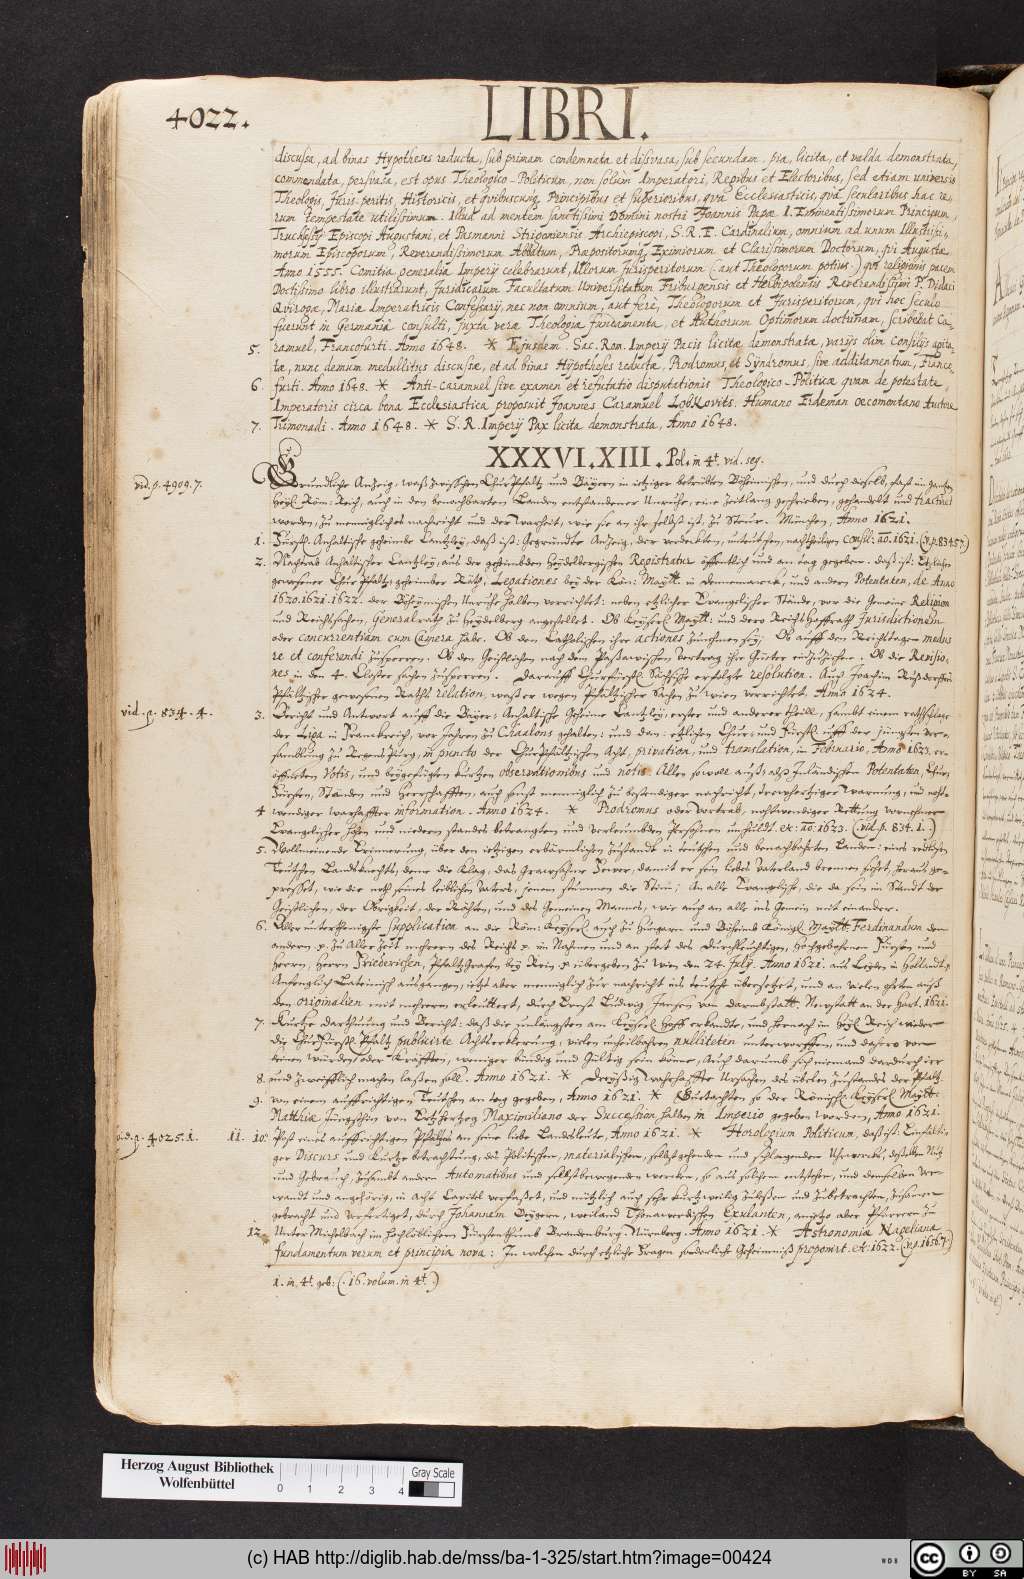 4022.
LIBRI.
discussa, ad binas Hypotheses reducta, sub primam condemnata et dissvasa, sub secundam, pia, licita, et valda demonstrata,
commendata, persvasa, est opus Theologico-Politicum, non solum Imperatori, Regibus et Electoribus, sed etiam universis
Theologis, Juris-peritis, Historicis, et quibuscunq, Principibus et superioribus, qvà Ecclesiasticis, qvà secularibus hac re-
rum tempestate utilissimum. Illud ad mentem sanctissimi Domini nostri Joannis Papæ I. Eminentissimorum Principum,
Truchsessy Episcopi Augustani, et Pasmanni Strigoniensis Archiepiscopi, S. R. E. Cardinalium, omnium ad unum Illustrissi-
morum Episcoporum, Reverendissimorum Abbatum, Præpositorumq, Eximiorum et Clarissimorum Doctorum, qvi Augustæ
Anno 1555. Comitia generalia Impery celebrarunt, Illorum jurisperitorum (aut Theologorum potius) qvi religionis pacem
Doctissimo libro illustrarunt, Juridicarum Facultatum Universitatum Friburgensis et Herbipolensis Reverendissimi P. Didaci
Qviroga, Mariæ Imperatricis Confessary, nec non omnium, aut ferè, Theologorum et Jurisperitorum, qvi hoc seculo
fuerunt in Germaniâ consulti, juxta veræ Theologiæ fundamenta, et Authorum Optimorum doctrinam, scribebat Ca-
ramuel, Francofurti. Anno 1648. * Ejusdem Sac. Rom. Impery Pacis licitæ demonstrata, varys olim Consilys agita-
5.
tæ, nunc demum medullitus discussæ, et ad binas Hypotheses reducta, Prodromus, et Syndromus, sive additamentum, Franco-
6. furti. Anno 1648. * Anti-Caramuel sive examen et refutatio disputationis Theologico-Politicæ qvam de potestate
Imperatoris circa bona Ecclesiastica proposuit Joannes Caramuel Lobkovits. Humano Erdeman oecomontano Auctore
7. Trimonadi. Anno 1648. * S. R. Impery Pax licita demonstrata, Anno 1648.
XXXVI.XIII. Pol. in 4t. vid. seq.
vid. p. 4909. 7.
Gründliche Anzeig, waß zwischen Chur Pfaltz und Bäyern in itziger betrübten Böhmischen, und durch dieselb, fast im gantzen
Heyl. Röm. Reich, auch in den benachbarten Landen entstandener Unruhe, eine Zeitlang geschrieben, gehandelt und tractiret
worden, zu menniglichs nachricht und der warheit, wie sie an ihr selbst ist, zu Steur. München, Anno 1621.
1. Fürstl. Anhaltische geheimbe Cantzley, daß ist: gegründte Anzeig, der verdeckten, unteutschen, nachtheiligen consil. ao. 1621. (v. p. 8345 7.)
2. Nachtrab Anhaltischer Cantzley, aus der geheimbden Heydelbergischen Registratur öffentlich und an tag gegeben. daß ist: Etzlicher
gewesener Chur Pfältz. geheimber Räth, Legationes bey der Kön. Maytt. in Dennemarck, und andern Potentaten, de Anno
1620. 1621. 1622. der Böheymischen Unruhe halben verrichtet: neben etzlicher Evangelischer Stände, vor die Gemeine Religion
und Reichssachen, General rath zu Heydelberg angestellet. Ob Keyserl. Maytt. und dero Reichs Hoffrath Jurisdictionem
oder concurrentiam cum Camera habe. Ob den Catholischen ihre actiones zunehmen sey. Ob auff den Reichstagen modus
re et conferendi zusperren. Ob den Geistlichen nach dem Paßawischen Vertrag ihre Güeter einzuziehen. Ob die Revisio-
nes in den 4. Closter sachen zusperren. Darauff Churfürstl. Sächsische erfolgte resolution. Auch Joachim Rußdorffen
Pfältzischer gewesenen Raths relation, waß er wegen Pfältzischer Sachen zu Wien verrichtet. Anno 1624.
vid. p. 834. 4.
3. Bericht und Antwort auff die Bäyer: Anhaltische Geheime Cantzley, erster und anderer theill, sambt einem rathschlage
der Liga in Franckreich, vor Jahren zu Chaalons gehalten: und dan: etzlichen Chur: und Fürstl. auff der jüngsten Ver-
samblung zu Regenspurg, in puncto der ChurPfältzischen Acht, privation, und translation, in Februario, Anno 1623. er-
öffneten Votis, und beygefügten kurtzen observationibus und notis. Allen sowoll auß: alß Inländischen Potentaten, Chur:
Fürsten, Ständen und Herrschafften, auch sonst menniglich zu bestendiger nachricht, trewhertziger warnung, und noth-
4 wendiger warhaffter information. Anno 1624. * Prodromus oder Vortrab, nothwendiger Rettung vornehmer
Evangelischer hohen und niedern standes betrangten und verleumbden Persohnen unschuldt. ex: ao: 1623. (vid. p. 834. 1.)
5. Wollmeinende Erinnerung, über den itzigen erbärmlichen zustandt in teutschen und benachbahrten Landen: eines redlichen
Teutschen Landsknechts, deme die Klag, das Grawsahme Fewer, damit er sein liebes Vaterland brennen siehet, heraus ge-
presset, wie die noth seines leiblichen Vaters, jenem stummen die Stim; An alle Evangelische, die da sein in Standt der
Geistlichen, der Obrigkeit, der Räthen, und des Gemeinen Mannes, wie auch an alle ins Gemein mit einander.
6. Allerunterthenigste supplication an die Röm. Keyserl. auch zu Hungarn und Böheimb Königl. Maytt. Ferdinandum den
andern p. zu Aller Zeit mehrern des Reichs p. im Nahmen und an stat des Durchleuchtigen, Hochgebohrnen Fürsten und
Herrn, Herrn Friederichen, Pfaltz Grafen bey Rein p. übergeben zu Wien den 24. July. Anno 1621. aus Leyden in Hollandt p
Anfenglich Lateinisch ausgangen, itzt aber menniglich zur nachricht ins teutsche übersetzet, und an vielen orthen auß
den originalien mit mehrerem erleuttert, durch Ernst Ludwig Jansen von Darmbstatt. Newstatt an der Hart. 1621.
7. Kurtze Darthuung und Bericht: daß die unlängsten am Keyserl. Hoff erkandte, und hernach im Heyl. Reich wieder
die Chur Fürstl. Pfaltz publicirte Achterklerung, vielen unheilbahren nulliteten unterworffen, und dahero von
keinen würden, oder Kräfften, weniger bündig und Gültig sein könne, Auch darumb sich niemand dardurch irr
8. und zweifflich machen laßen soll. Anno 1621. * Dreyßig wahrhaffte Ursachen des üblen zustandes der Pfaltz.
9. von einem auffrichtigen Teutschen an tag gegeben, Anno 1621. * Gutachten so der Römische Keyserl. Maytt.
Matthiæ jüngsthin von Ertz Hertzog Maximiliano der Succession halben in Imperio gegeben worden, Anno 1621.
vid. p. 4025. 1.
11. 10. Post eines auffrichtigen Pfältzers an seine liebe Landsleute, Anno 1621. * Horologium Politicum, daß ist: Einfälti-
ger Discurs und Kurtze betrachtung, der Politischen, materialischen, selbstgehenden und schlagenden Uhrwerck, deßelben Nutz
und Gebrauch, zusambt andern Automatibus und selbstbewegenden wercken, so auß solchem entstehen, und demselben ver-
wandt und angehörig, in acht Capitel verfasset, und nützlich auch sehr kurtzweilig zulesen und zubetrachten, zusamen
gebracht und verfertiget, durch Johannem Geygern, weiland Donawerdischen Exulanten, anitzo aber Pfarrern zu
12. Unter Michelbach im hochlöblichem Fürstenthumb Brandenburg. Nürnberg. Anno 1621. * Astronomiæ Nageliana
fundamentum verum et principia nova: In welchem durch etzliche Fragen sonderliche Geheimniß proponirt. ex. 1622. (v. p. 1636 7.)
1. in 4t. geb: (. 16. volum. in 4t. )
Herzog August Bibliothek
Wolfenbüttel
0 1 2 3 4
Gray Scale
(c) HAB http://diglib.hab.de/mss/ba-1-325/start.htm?image=00424
WDB
cc BY SA